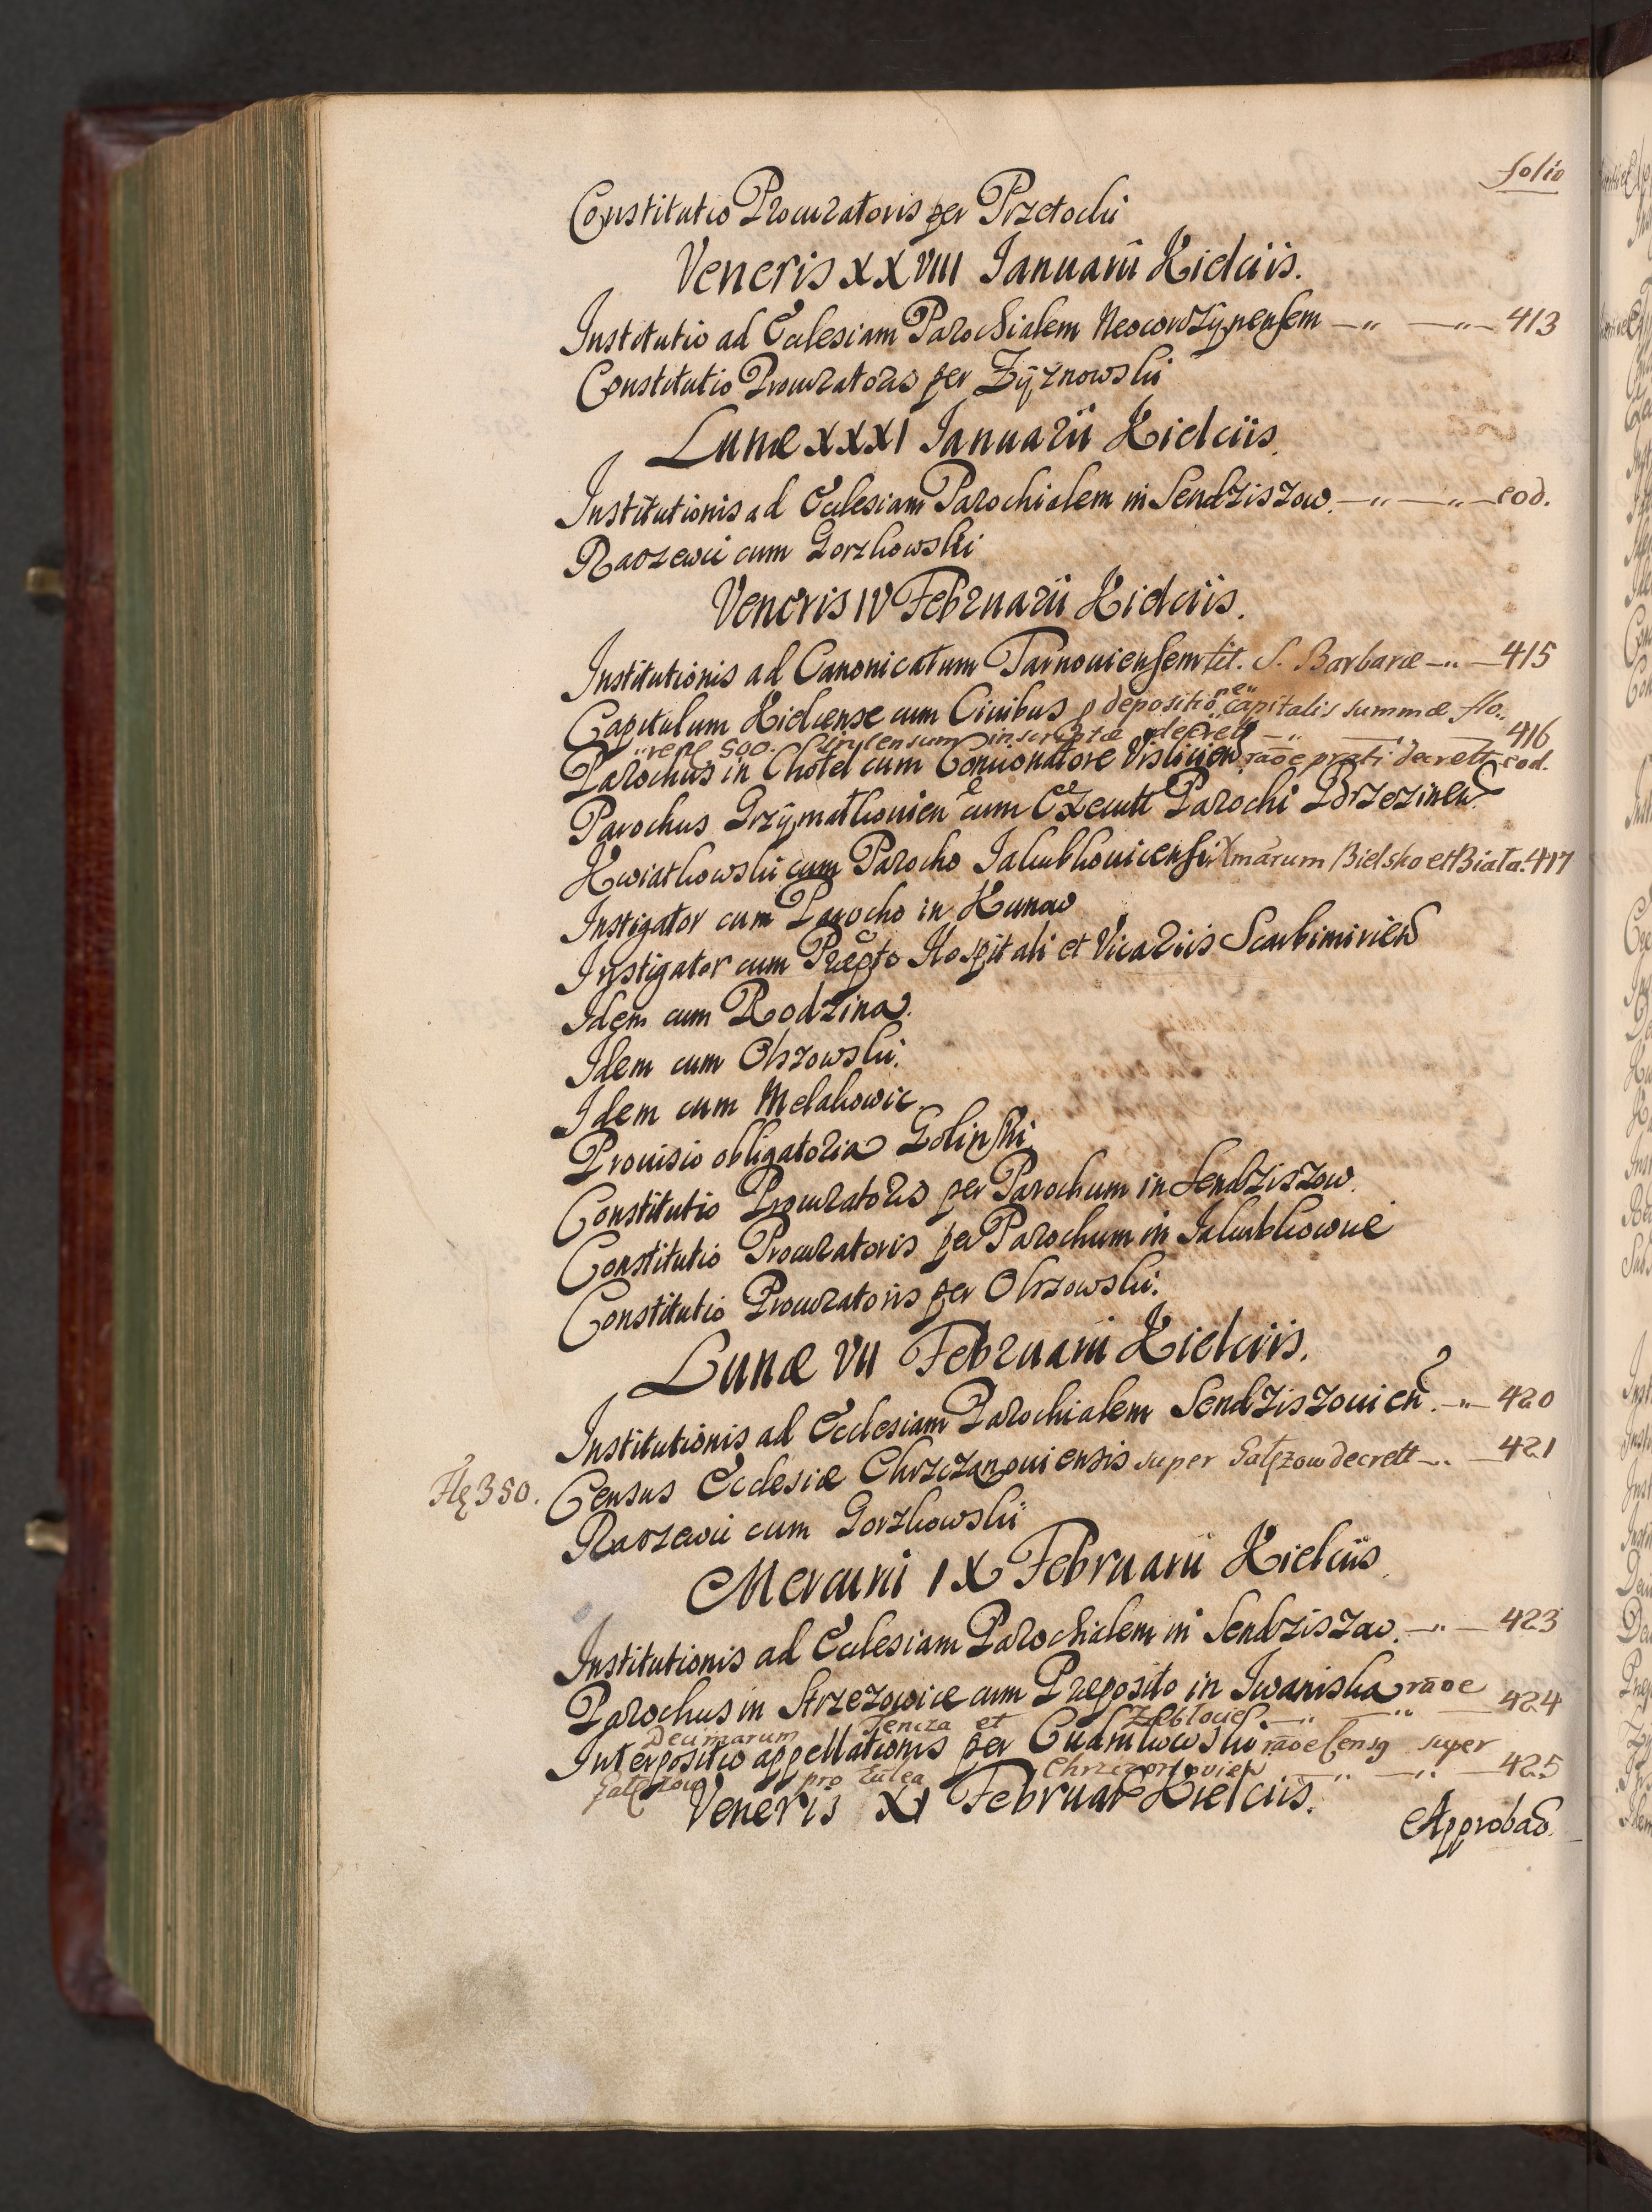 folio
Constitutio Procuratoris per Przetocki
Veneris XXVIII Januarii Kielciis.
Institutio ad Ecclesiam Parochialem Neocorczÿnensem —„— —„— 413
Constitutio Procuratoris per Zÿznowski
Lunæ XXXI Januarii Kielciis.
Institutionis ad Ecclesiam Parochialem in Sendziszow. —„— —„— eod.
Raczewii cum Gorzkowski
Veneris IV Februarii Kielciis.
Institutionis ad Canonicatum Tarnouiensem tit. S. Barbaræ —„— 415
Capitulum Kielcense cum Ciuibus p depositioẽ capitalis summæ flo.
500. inscriptæ decrett —„— 416
Parochus in Chotel cum Concionatore Vislicien raõe prati decrett eod.
Parochus Grzÿmałkouien cum Execut Parochi Brzezinen
Kwiatkowski cum Parocho Jakubkouicensi Xmarum Bielsko et Biała. 417
Instigator cum Parocho in Kunow
Instigator cum Præpto Hospitali et Vicariis Scarbimirien
Idem cum Rodzina.
Idem cum Olszowski.
Idem cum Melakowic
Prouisio obligatoria Golinski
Constitutio Procuratoris per Parochum in Sendziszow.
Constitutio Procuratoris per Parochum in Jakubkowice
Constitutio Procuratoris per Olszowski.
Lunæ VII Februarii Kielciis.
Institutionis ad Ecclesiam Parochialem Sendziszouien. —„— 420
Flę 350. Census Ecclesiæ Chrzczonouiensis super Gałęzow decrett —„— 421
Raczewii cum Gorzkowski
Mercurii IX Februarii Kielciis.
Institutionis ad Ecclesiam Parochialem in Sendziszow. —„— 423
Parochus in Strzezowice cum Præposito in Iwaniska raõe
Decimarum et —„— —„— 424
Interpositio appellationis per raõe Censq super
Gałęzow pro Eccłea —„— —„— 425
Veneris XI Februar Kielciis.
Approbaõ